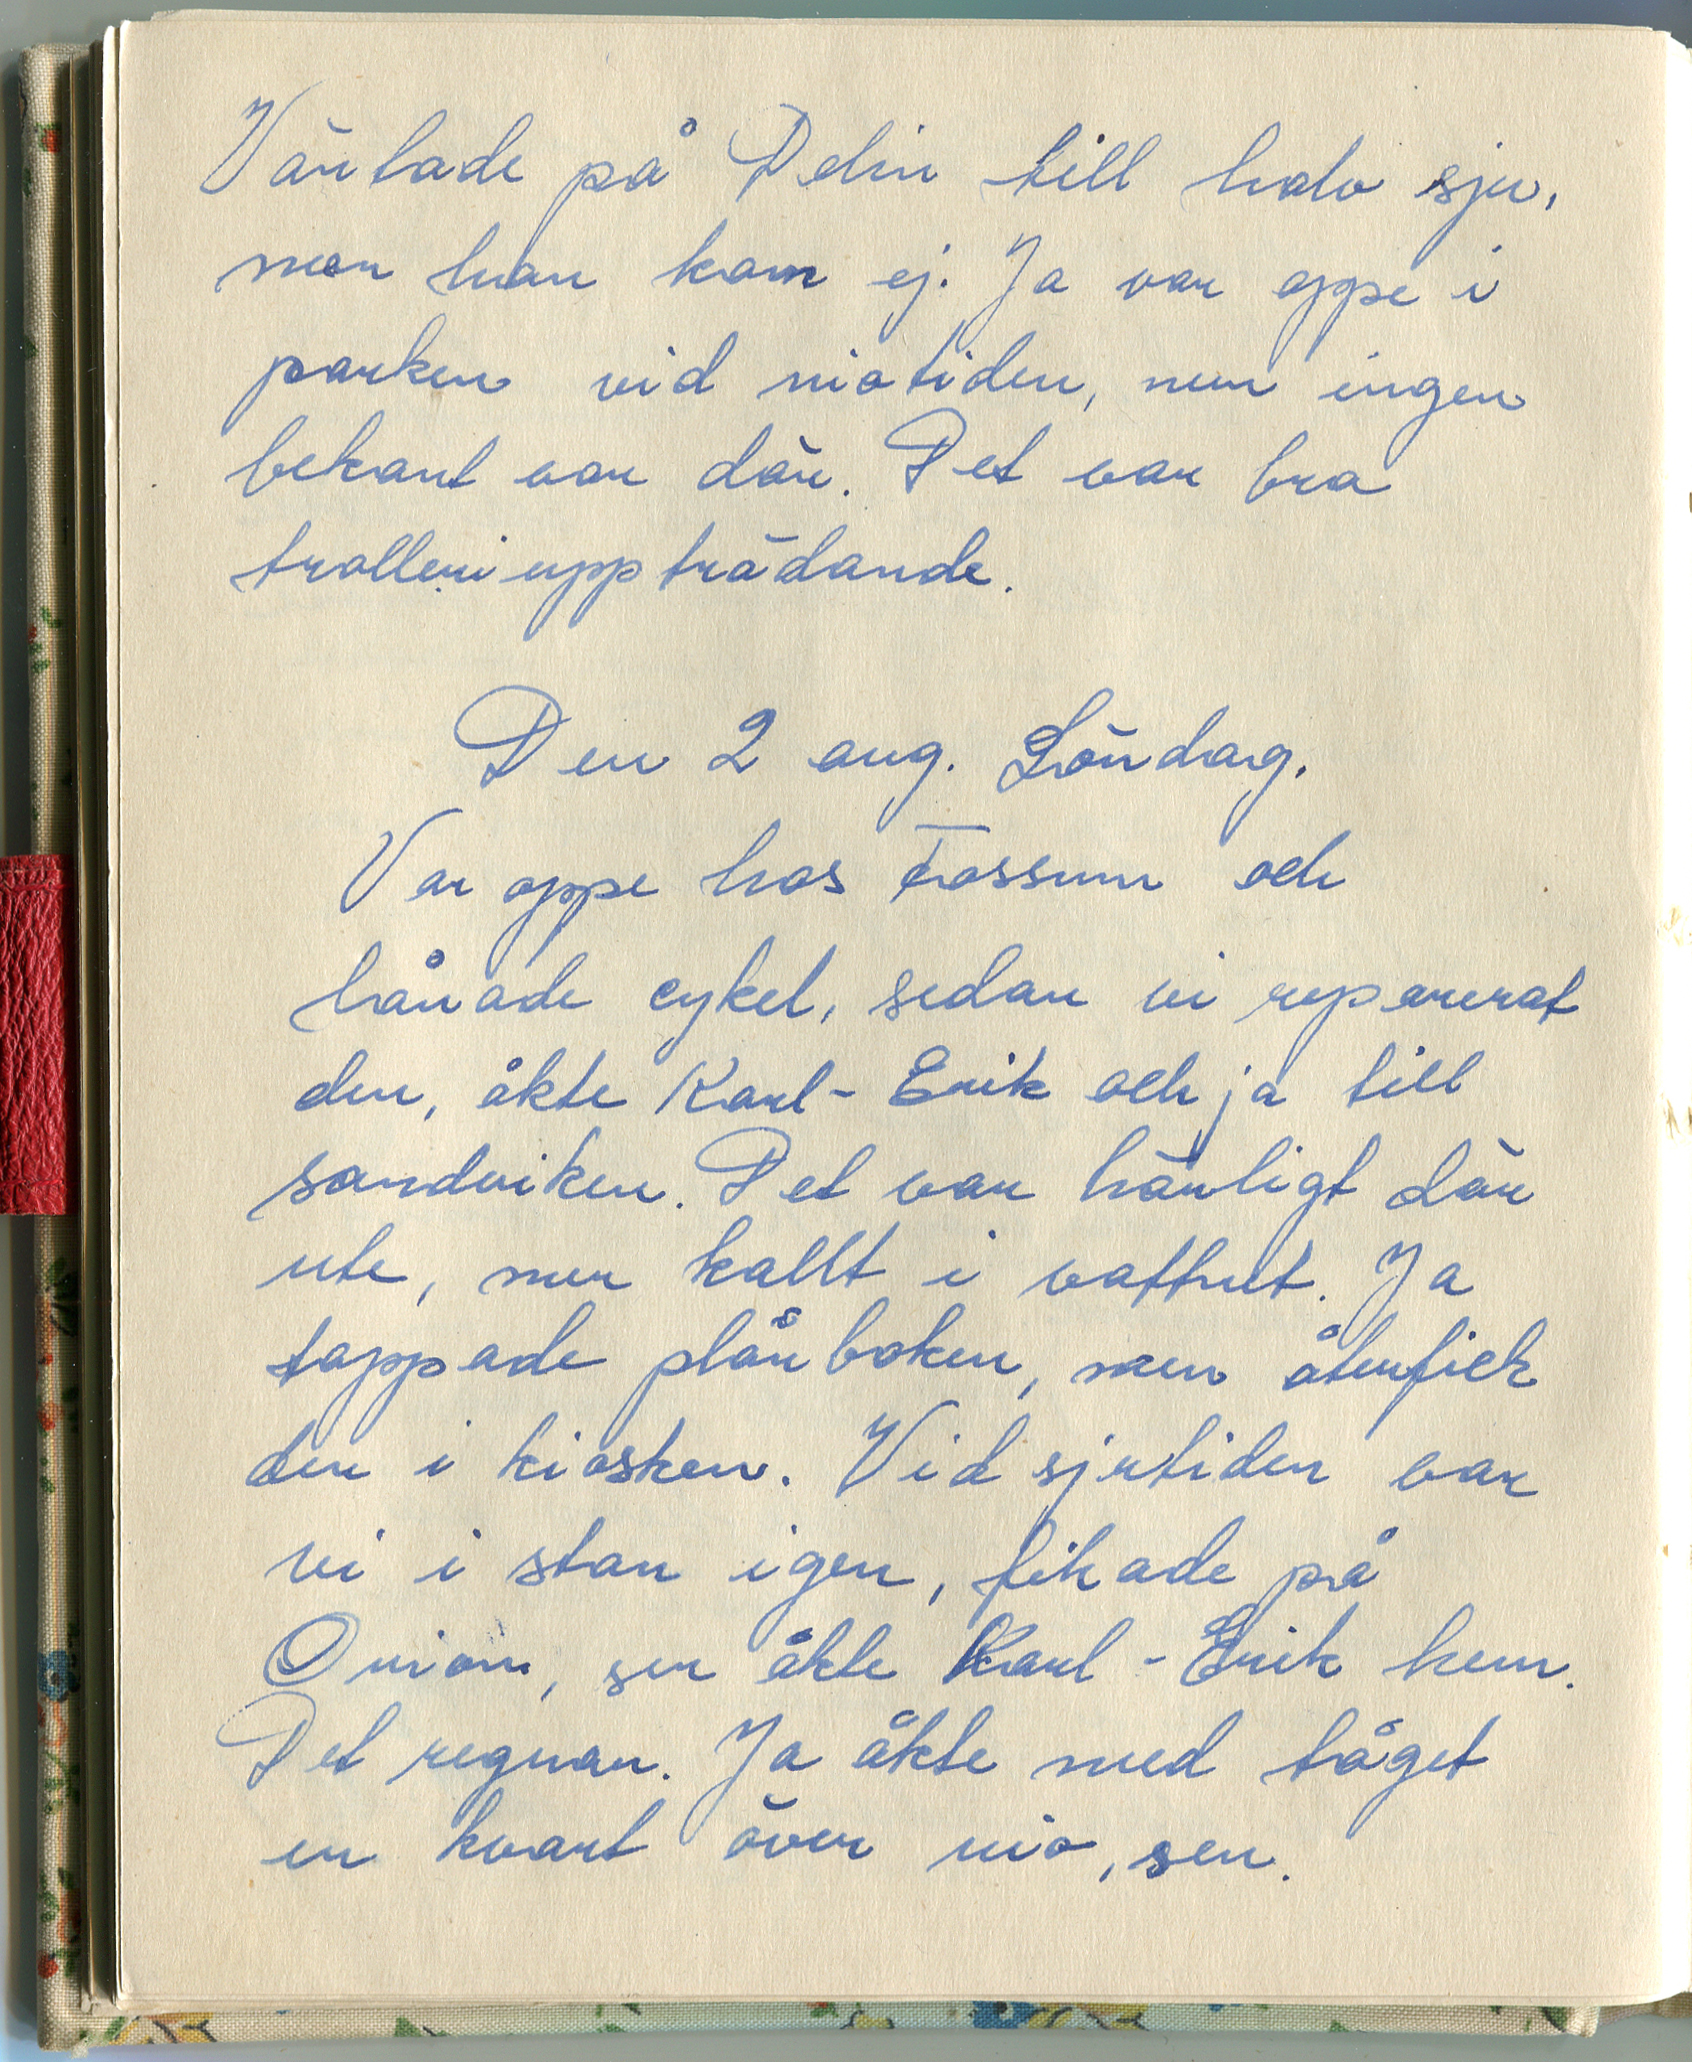 Väntade på Delin till halv sju,
men han kom ej. Ja var oppe i
parken vid niotiden, men ingen
bekant var där. Det var bra
trolleriuppträdande.
Den 2 aug. Söndag.
Var oppe hos Fossum och
lånade cykel, sedan vi reparerat
den, åkte Karl-Erik och ja till
sandviken. Det var härligt där
ute, men kallt i vattnet. Ja
tappade plånboken, men återfick
den i kiosken. Vid sjutiden var
vi i stan igen, fikade på
Orion, sen åkte Karl-Erik hem.
Det regnar. Ja åkte med tåget
en kvart över nio, sen.